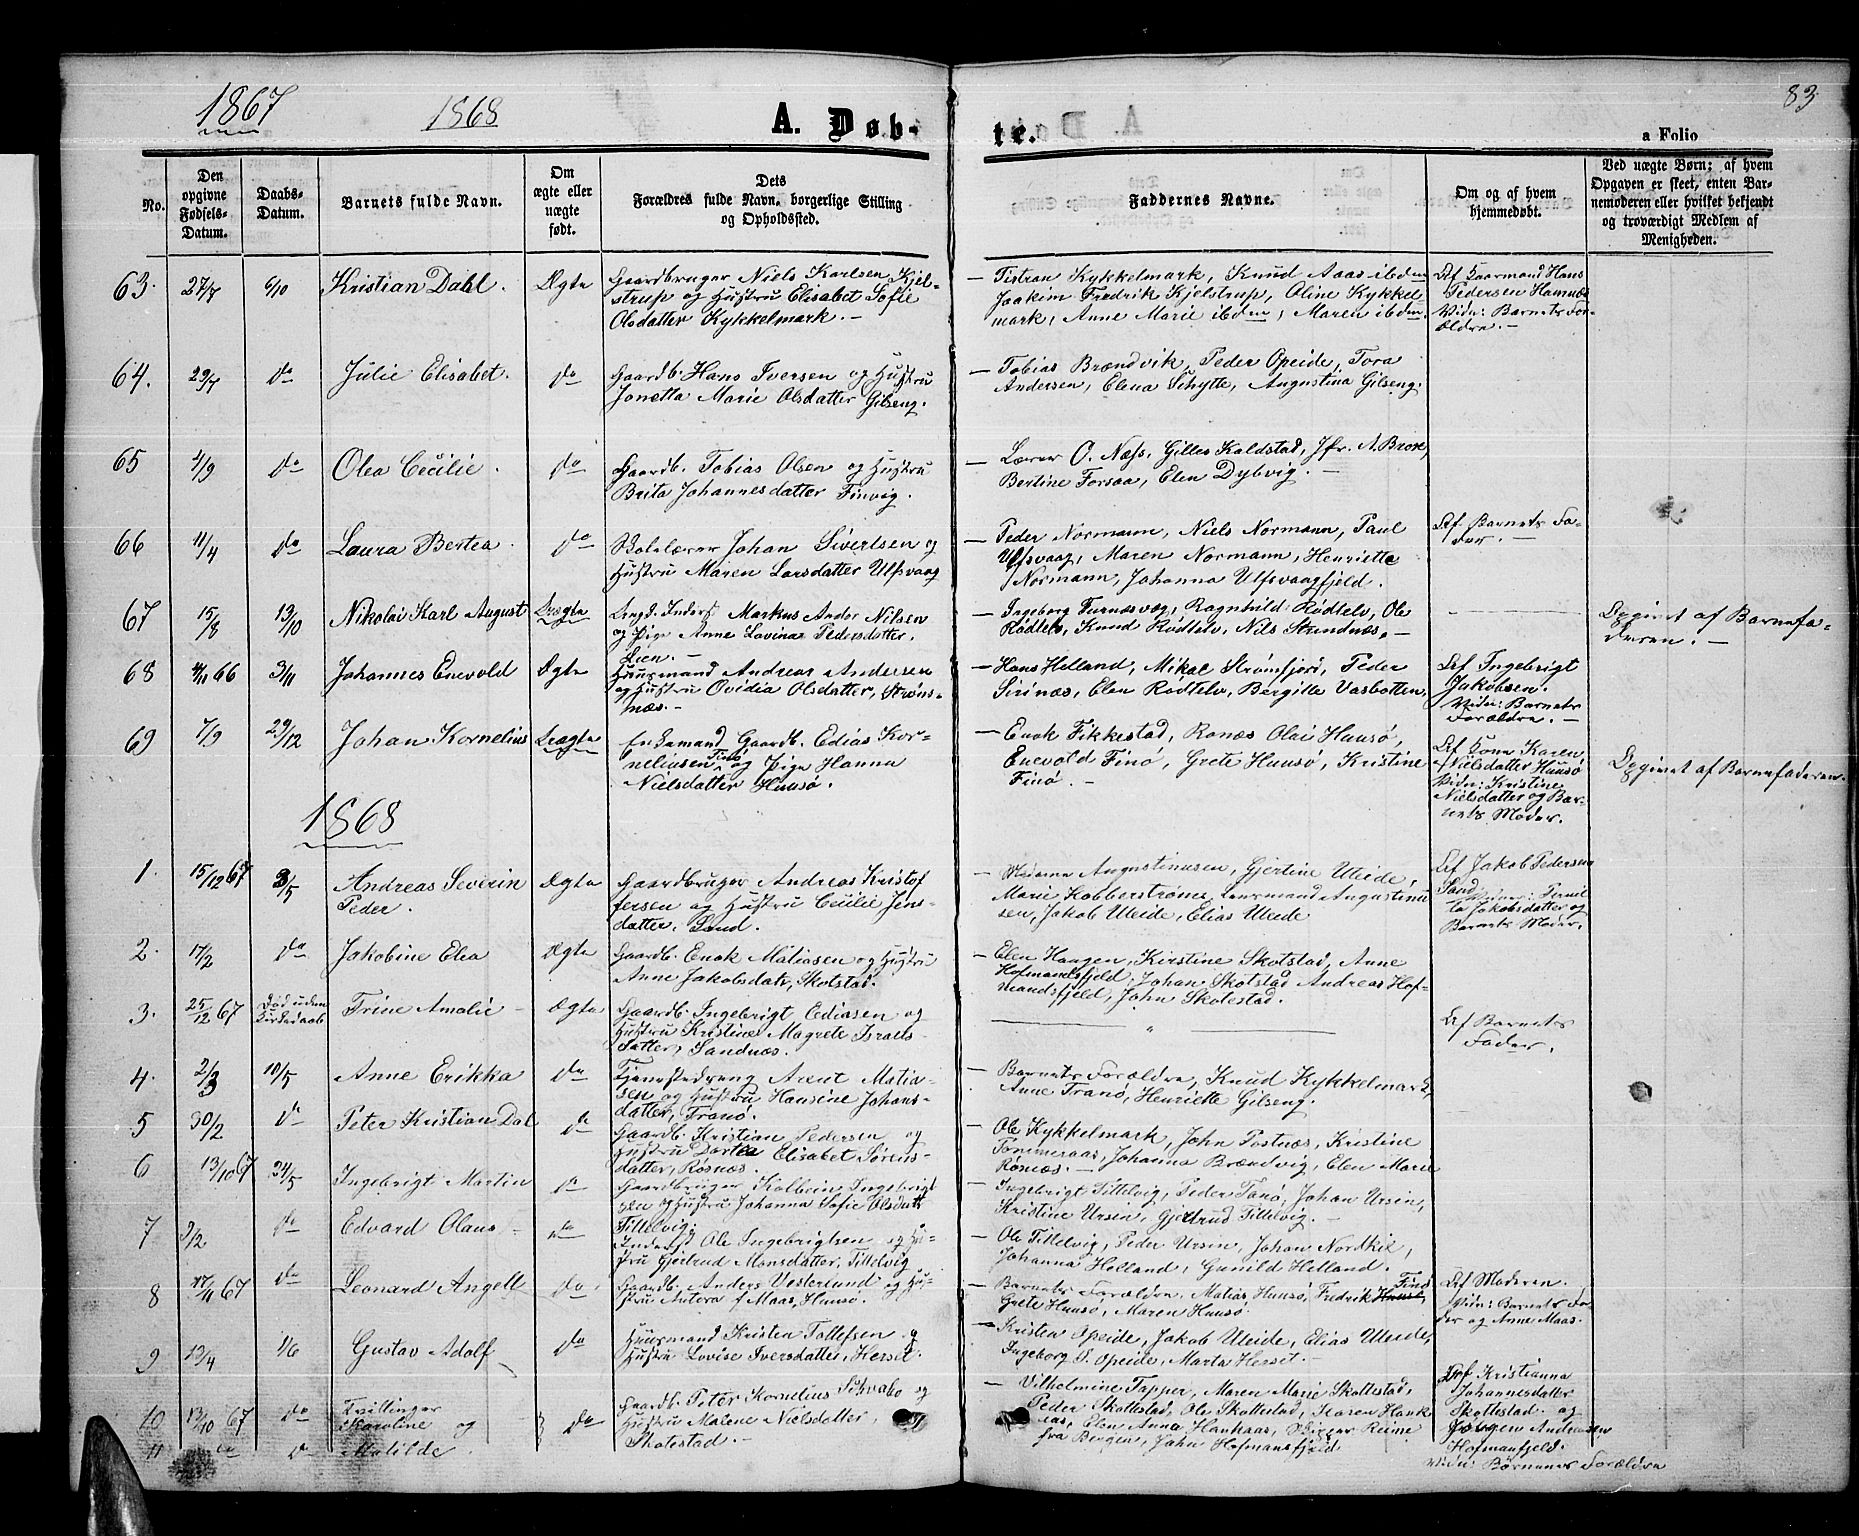 1867
1868
A. Døb-
te.
83
a Folio
No.
Den
opgivne
Fødsels-
Datum.
Daabs-
Datum.
Barnets fulde Navn.
Om
ægte eller
uægte
født.
Dets
Forældres fulde Navn, borgerlige Stilling
og Opholdssted.
Faddernes Navne.
Om og af hvem
hjemmedøbt.
Ved uægte Børn; af hvem
Opgaven er skeet, enten Bar-
nemoderen eller hvilket bekjendt
og troværdigt Medlem af
Menigheden.
63. 27/7 6/10 Kristian Dahl. Ægte
Gaardbruger Niels Karlsen Kjel-
strup og Hustru Elisabet Sofie
Olsdatter Kykkelmark. –
– Tistran Kykkelmark, Knud Aaas ibdm
Joakim Fredrik Kjelstrup, Oline Kykkel
mark, Anne Marie ibdm, Maren ibdm.
Af Gaarmand Hans
Pedersen Hamnæs
Vidn: Barnets For-
ældre. –
64. 29/7 do Julie Elisabet. do
Gaardb. Hans Iversen og Hustru
Jonetta Marie Olsdatter Gilseng.
– Tobias Brændvik, Peder Opeide, Tora
Andersen, Elena Schytte, Augustina Gilseng.
65 4/9 do Olea Cecilie. do
Gaardb. Tobias Olsen og Hustru
Brita Johannesdatter Finvig.
– Lærer O. Næss, Gilles Kaldstad, Jfr. A. Brox,
Bertine Forsaa, Elen Dybvig. –
66 11/4 do Laura Bertea. do
Johan Sivertsen og
Hustru Maren Larsdatter Ulfsvaag
– Peder Normann, Niels Normann, Paul
Ulfsvaag, Maren Normann, Henriette
Normann, Johanna Ulfsvaagfjeld.
Af Barnets Fa-
der. –
67 15/8 13/10 Nikolai Karl August Uægte
Ungk. Inderst Markus Andor Nilsen
og Pige Anne Lovina Pedersdatter.
Lien. –
– Ingeborg Furnesvæg, Ragnhild Rødtelv, Ole
Rødtelv, Knud Rødtelv, Nils Strandnæs. –
Opgivet af Barnefa-
deren. –
68 4/11 66 3/11 Johannes Enevold Ægte
Huusmand Andreas Andersen
og Hustru Ovidia Olsdatter, Strøms-
næs. –
– Hans Helland, Mikal Strømfjord, Peder
Sirinæs, Elen Rødtelv, Bergitte Vasbotten,
Af Ingebrigt
Jakobsen.
Vidn: Barnets
Forældre. –
69 7/9 29/12 Johan Kornelius Uægte
Enkemand Gaardb. Edias Kor-
neliusen Finø og Pige Hanna
Nielsdatter Huusø.
– Enok Fikkestad, Ronæs Olai Huusø,
Enevold Finø, Grete Huusø, Kristine
Finø. –
Af Kone Karen
Nielsdatter Huusø
Vidn: Kristine
Nielsdatter og Bar-
nets Moder.
Opgivet af Barnefaderen.
1868
1. 15/12 67 3/5 Andreas Severin
Peder. Ægte
Gaardbruger Andreas Kristof
fersen og Hustru Cecilie Jens-
datter, Sand.
– Madama Augustinusen, Gjertine Uleide,
Marie Kobberstrøm, Lensmand Augustinu
sen, Jakob Uleide, Elias Uleide
Af Jakob Pedersen
Sand
Vidner: Pernil-
la Jakobsdatter og
Barnets Moder.
2. 17/2 do Jakobine Elea Ægte
Gaardb. Enok Matiasen og Hustru
Anne Jakobsdatr, Skotstad.
– Elen Haagen, Kirstine Skotstad, Anne
Hofmandsfjeld, Johan Skotstad Andreas Hof-
mandsfjeld, John Skotestad.
3. 25/12 67 Død uden
Kirkedaab Trine Amalie – Ægte
Gaardb. Ingebrigt Ediasen og
Hustru Kristine Magrete Israels-
datter, Sandnæs.
Af Barnets
Fader.
4. 2/3 10/5 Anne Erikka do
Arent Matia-
sen og Hustru Hansine Johans-
datter, Tranø.
– Barnets Forældre, Knud Kykkelmark,
Anne Tranø, Henriette Gilseng.
5 30/2 do Peter Kristian Dal do
Gaardb. Kristian Pedersen og
Hustru Dortea Elisabet Sørens-
datter, Røsnæs.
– Ole Kykkelmark, John Postnæs, Kristine
Tømmeraas, Johanna Brændvig, Elen Marie
Rønæs. –
6 13/10 67 24/5 Ingebrigt Martin do
Gaardbruger Kolbein Ingebrigt
sen og Hustru Johanna Sofie Olsdatt
Tittelvig.
– Ingebrigt Tittelvig, Peder Tanø, Johan Ursin,
Kristine Ursin, Gjertrud Tittelvig. –
7 3/2 do Edvard Olaus – do
Inderst Ole Ingebrigtsen og Hu-
stru Gjertrud Monsdatter, Tittelvig
– Ole Tittelvig, Peder Ursin, Johan Nordkil,
Johanna Helland, Gunild Helland.
8 17/11 67 do Leonard Angell do
Gaardb. Anders Vesterlund og Hu-
stru Antora f. Maas, Huusø.
– Barnets Forældre, Matias Huusø, Fredrik Huusø, Finø
Grete Huusø, Maren Huusø.
Af Moderen.
Vidn: Barnets Fa-
der og Anne Maas.
9 13/4 1/6 Gustav Adolf do
Huusmand Kristen Tollefsen og
Hustru Lovise Iversdatter, Herset.
– Kristen Opeide, Jakob Uleide, Elias Uleide,
Ingeborg S. Opeide, Marta Herset. –
10 13/10 67 do Tvillinger
Karoline og do
11 do do Matilde
Gaardb. Peter Kornelius Schvabo og
Hustru Malene Nielsdatter,
Skotestad. –
– Vilhelmine Tapper, Maren Marie Skottestad,
Peder Skottestad, Ole Skottestad, Karen Hank
aas, Elen Anna Hankaas, Birger Reime
fra Bergen, John Hofmansfjeld.
Af Kristianna
Johannesdatter
Skottestad og
Jørgen Andreasen
Hofmanfjeld.
Vidn: Børnenes Forældre